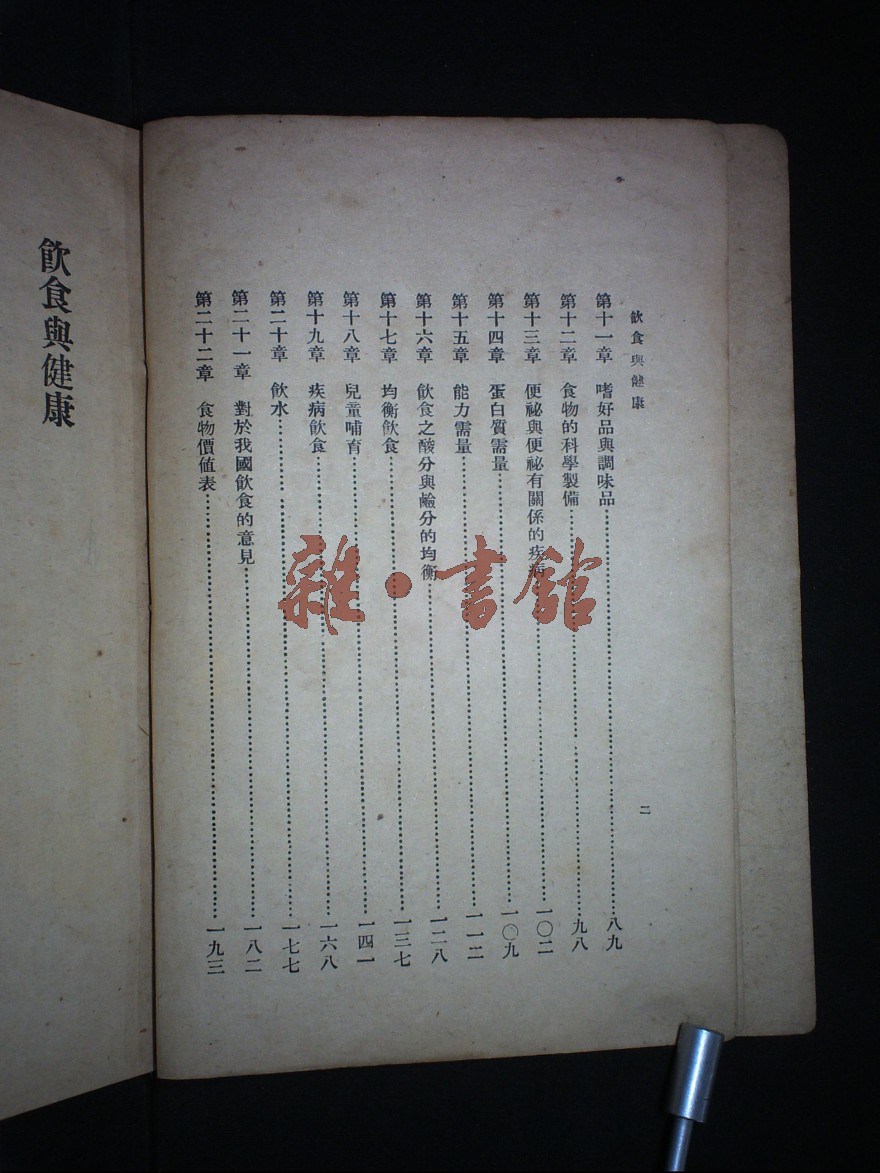 飲食與健康
二
第十一章　嗜好品與調味品…………八九
第十二章　食物的科學製備…………九八
第十三章　便祕與便祕有關係的疾病…………一〇二
第十四章　蛋白質需量…………一〇九
第十五章　能力需量…………一一二
第十六章　飲食之酸分與鹼分的均衡…………一二八
第十七章　均衡飲食…………一三七
第十八章　兒童哺育…………一四一
第十九章　疾病飲食…………一六八
第二十章　飲水…………一七七
第二十一章　對於我國飲食的意見…………一八二
第二十二章　食物價值表…………一九三
飲食與健康
雜·書館